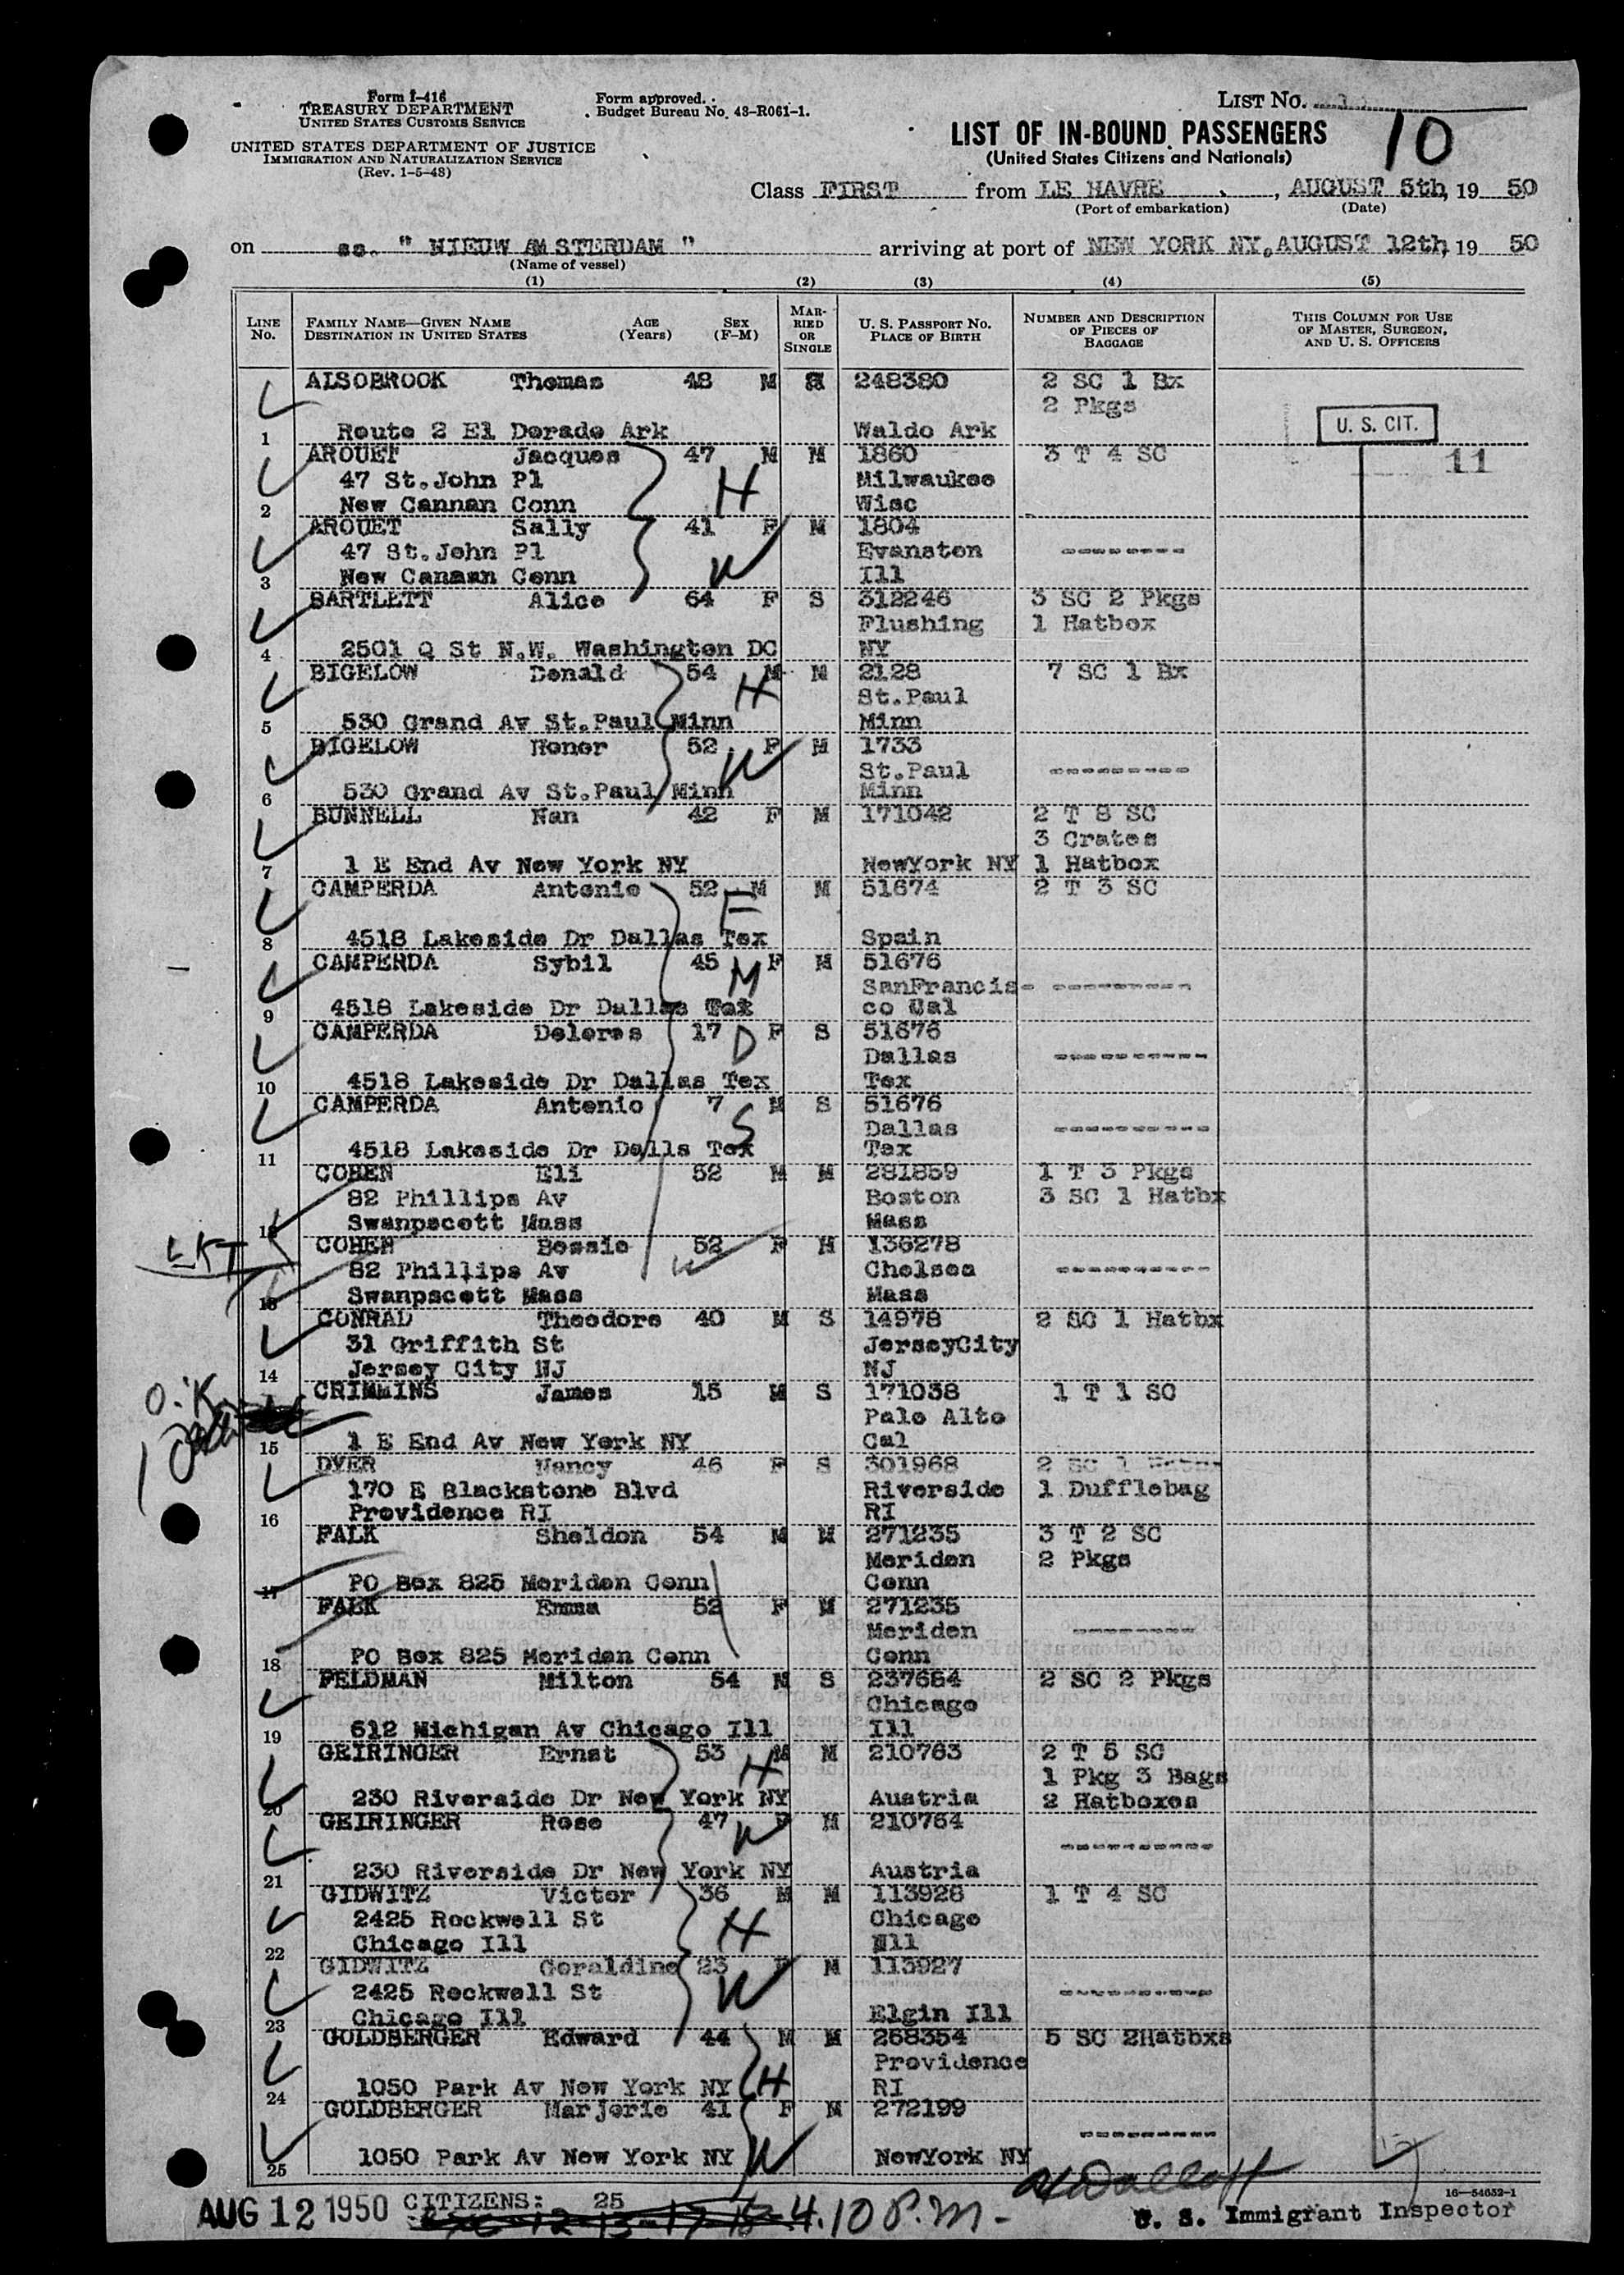 Form I-416
TREASURY DEPARTMENT
UNITED STATES CUSTOMS SERVICE
UNITED STATES DEPARTMENT OF JUSTICE
IMMIGRATION AND NATURALIZATION SERVICE
(Rev. 1-5-48)
Form approved.
Budget Bureau No. 43-R061-1.
LIST NO.
10
LIST OF IN-BOUND PASSENGERS
(United States Citizens and Nationals)
Class FIRST from LE HAVRE, AUGUST 5th, 19 50
(Port of embarkation) (Date)
on ss. " NIEUW AMSTERDAM " arriving at port of NEW YORK NY, AUGUST 12th, 19 50
(Name of vessel)
(1) (2) (3) (4) (5)
LINE No. FAMILY NAME—GIVEN NAME DESTINATION IN UNITED STATES AGE (Years) SEX (F-M) MARRIED OR SINGLE U. S. PASSPORT No. PLACE OF BIRTH NUMBER AND DESCRIPTION OF PIECES OF BAGGAGE THIS COLUMN FOR USE OF MASTER, SURGEON, AND U. S. OFFICERS
ALSOBROOK Thomas 48 M 248380 2 SC 1 Bx
2 Pkgs
1 Route 2 El Dorado Ark Waldo Ark U. S. CIT.
AROUET Jacques 47 M M 1860 3 T 4 SC 11
47 St.John Pl H Milwaukee
2 New Cannan Conn Wisc
AROUET Sally 41 F M 1804
47 St.John Pl W Evanston ---------
3 New Canaan Conn Ill
BARTLETT Alice 64 F S 312246 3 SC 2 Pkgs
Flushing 1 Hatbox
4 2501 Q St N.W. Washington DC NY
BIGELOW Donald 54 M M 2128 7 SC 1 Bx
H St.Paul
5 530 Grand Av St.Paul Minn Minn
BIGELOW Honor 52 F M 1733
W St.Paul ---------
6 530 Grand Av St.Paul Minn Minn
BUNNELL Nan 42 F M 171042 2 T 8 SC
3 Crates
7 1 E End Av New York NY NewYork NY 1 Hatbox
CAMPERDA Antonio 52 M M 51674 2 T 3 SC
F
8 4518 Lakeside Dr Dallas Tex Spain
CAMPERDA Sybil 45 F M 51676
M SanFrancis- ----------
9 4518 Lakeside Dr Dallas Tex co Cal
CAMPERDA Delores 17 F S 51676
D Dallas ----------
10 4518 Lakeside Dr Dallas Tex Tex
CAMPERDA Antonio 7 M S 51676
S Dallas ----------
11 4518 Lakeside Dr Dalls Tex Tex
COHEN Eli 52 M M 281859 1 T 3 Pkgs
82 Phillips Av Boston 3 SC 1 Hatbx
Swanpscott Mass Mass
COHEN Bessie 52 F M 136278
82 Phillips Av W Chelsea ----------
Swanpscott Mass Mass
CONRAD Theodore 40 M S 14978 2 SC 1 Hatbx
31 Griffith St JerseyCity
14 Jersey City NJ NJ
O.K. CRIMMINS James 15 M S 171038 1 T 1 SC
Palo Alto
15 1 E End Av New York NY Cal
DYER Nancy 46 F S 301968 2 SC 1
170 E Blackstone Blvd Riverside 1 Dufflebag
16 Providence RI RI
FALK Sheldon 54 M M 271235 3 T 2 SC
Meriden 2 Pkgs
17 PO Box 825 Meriden Conn Conn
FALK Emma 52 F M 271235
Meriden ---------
18 PO Box 825 Meriden Conn Conn
FELDMAN Milton 54 M S 237684 2 SC 2 Pkgs
Chicago
19 612 Michigan Av Chicago Ill Ill
GEIRINGER Ernst 53 M M 210763 2 T 5 SC
H 1 Pkg 3 Bags
20 230 Riverside Dr New York NY Austria 2 Hatboxes
GEIRINGER Rose 47 F M 210764
W ----------
21 230 Riverside Dr New York NY Austria
GIDWITZ Victor 36 M M 113928 1 T 4 SC
2425 Rockwell St H Chicago
22 Chicago Ill Ill
GIDWITZ Geraldine 23 F M 113927
2425 Rockwell St W ----------
23 Chicago Ill Elgin Ill
GOLDBERGER Edward 44 M M 258354 5 SC 2Hatbxs
Providence
24 1050 Park Av New York NY H RI
GOLDBERGER Marjorie 41 F M 272199
---------
25 1050 Park Av New York NY W NewYork NY
16—54652-1
AUG 12 1950 CITIZENS: 25
4.10 P.M. - U. S. Immigrant Inspector